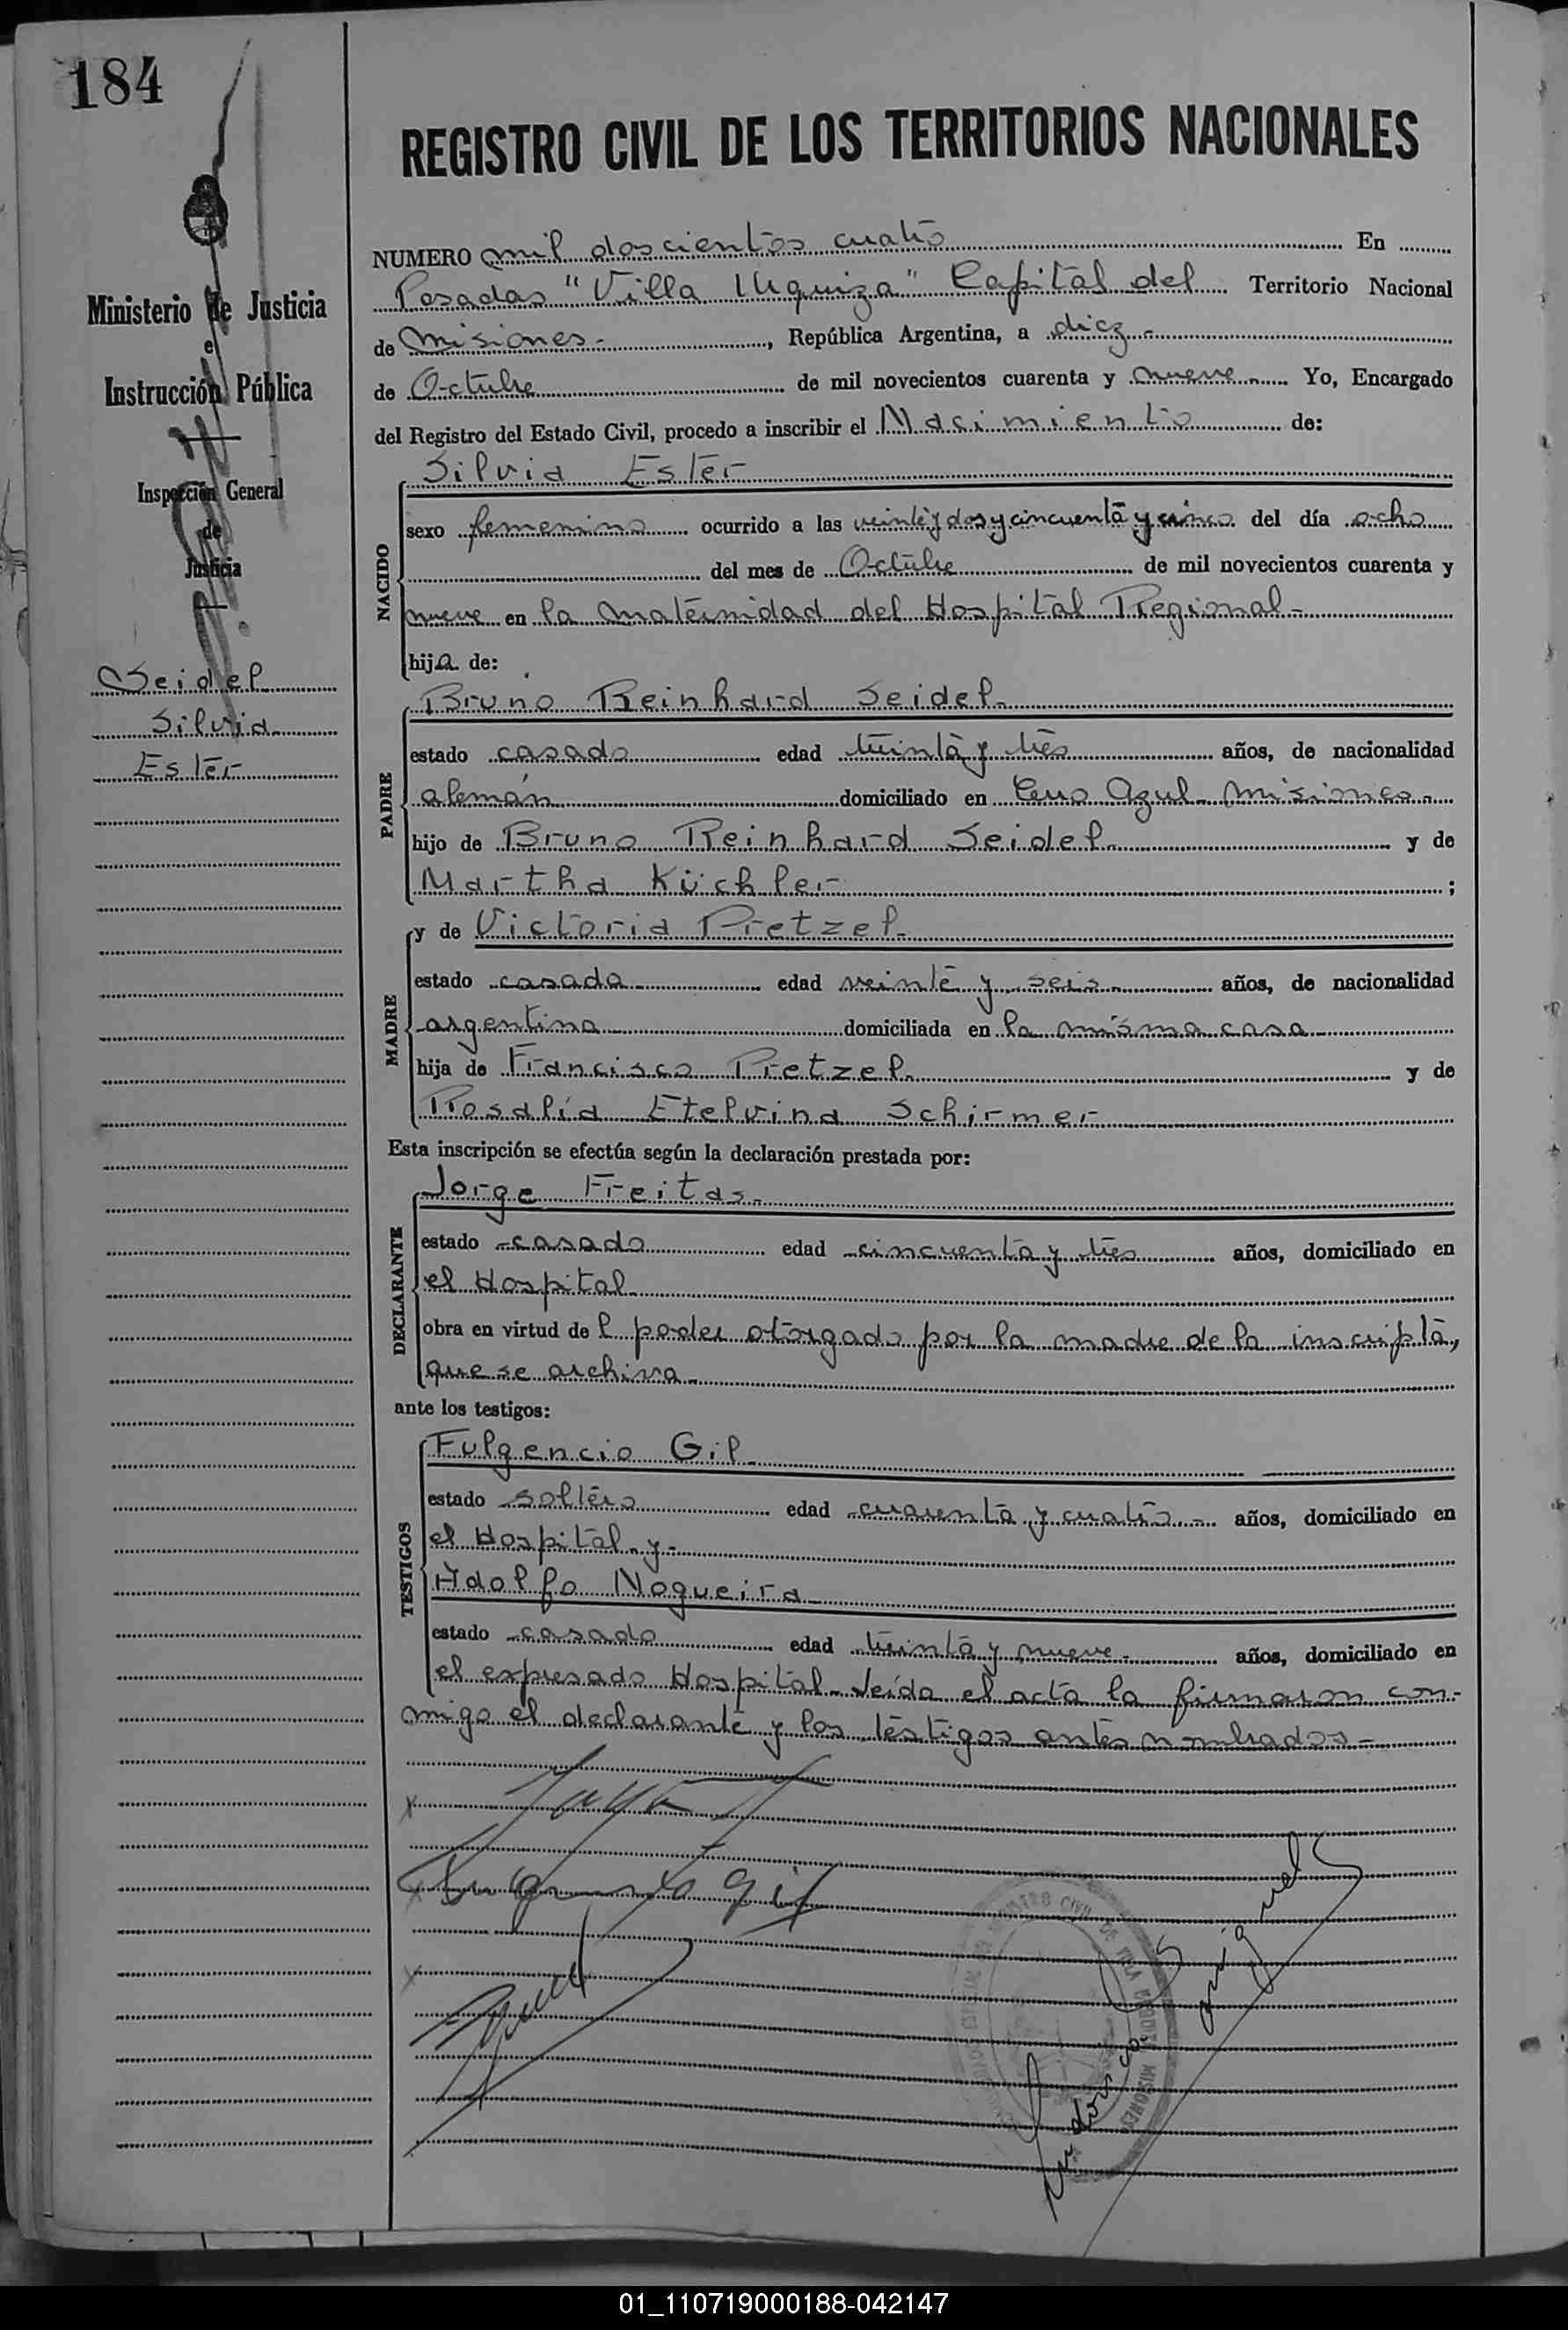 184
REGISTRO CIVIL DE LOS TERRITORIOS NACIONALES
Ministerio de Justicia
e
Instrucción Pública
Inspección General
de
Justicia
Seidel
Silvia
Ester
NUMERO mil doscientos cuatro En
Posadas "Villa Urquiza" Capital del Territorio Nacional
de Misiones.-, República Argentina, a diez.-
de Octubre de mil novecientos cuarenta y nueve. Yo, Encargado
del Registro del Estado Civil, procedo a inscribir el Nacimiento de:
NACIDO
Silvia Ester
sexo femenino ocurrido a las veinte y dos y cincuenta y cinco del día ocho
del mes de Octubre de mil novecientos cuarenta y
nueve en la maternidad del Hospital Regional-
hija de:
PADRE
Bruno Reinhard Seidel-
estado casado edad treinta y tres años, de nacionalidad
alemán domiciliado en Cerro Azul- Misiones-
hijo de Bruno Reinhard Seidel- y de
Martha Küchler ;
MADRE
y de Victoria Pretzel-
estado casada edad veinte y seis años, de nacionalidad
argentina domiciliada en la misma casa
hija de Francisco Pretzel- y de
Rosalía Etelvina Schirmer
Esta inscripción se efectúa según la declaración prestada por:
DECLARANTE
Jorge Freitas-
estado casado edad cincuenta y tres años, domiciliado en
el Hospital
obra en virtud del poder otorgado por la madre de la inscripta,
que se archiva-
ante los testigos:
TESTIGOS
Fulgencio Gil
estado soltero edad cuarenta y cuatro.- años, domiciliado en
el Hospital y-
Adolfo Nogueira
estado casado edad treinta y nueve- años, domiciliado en
el expresado Hospital- Leída el acta la firmaron con-
migo el declarante y los testigos antes nombrados-
x
x
01_110719000188-042147